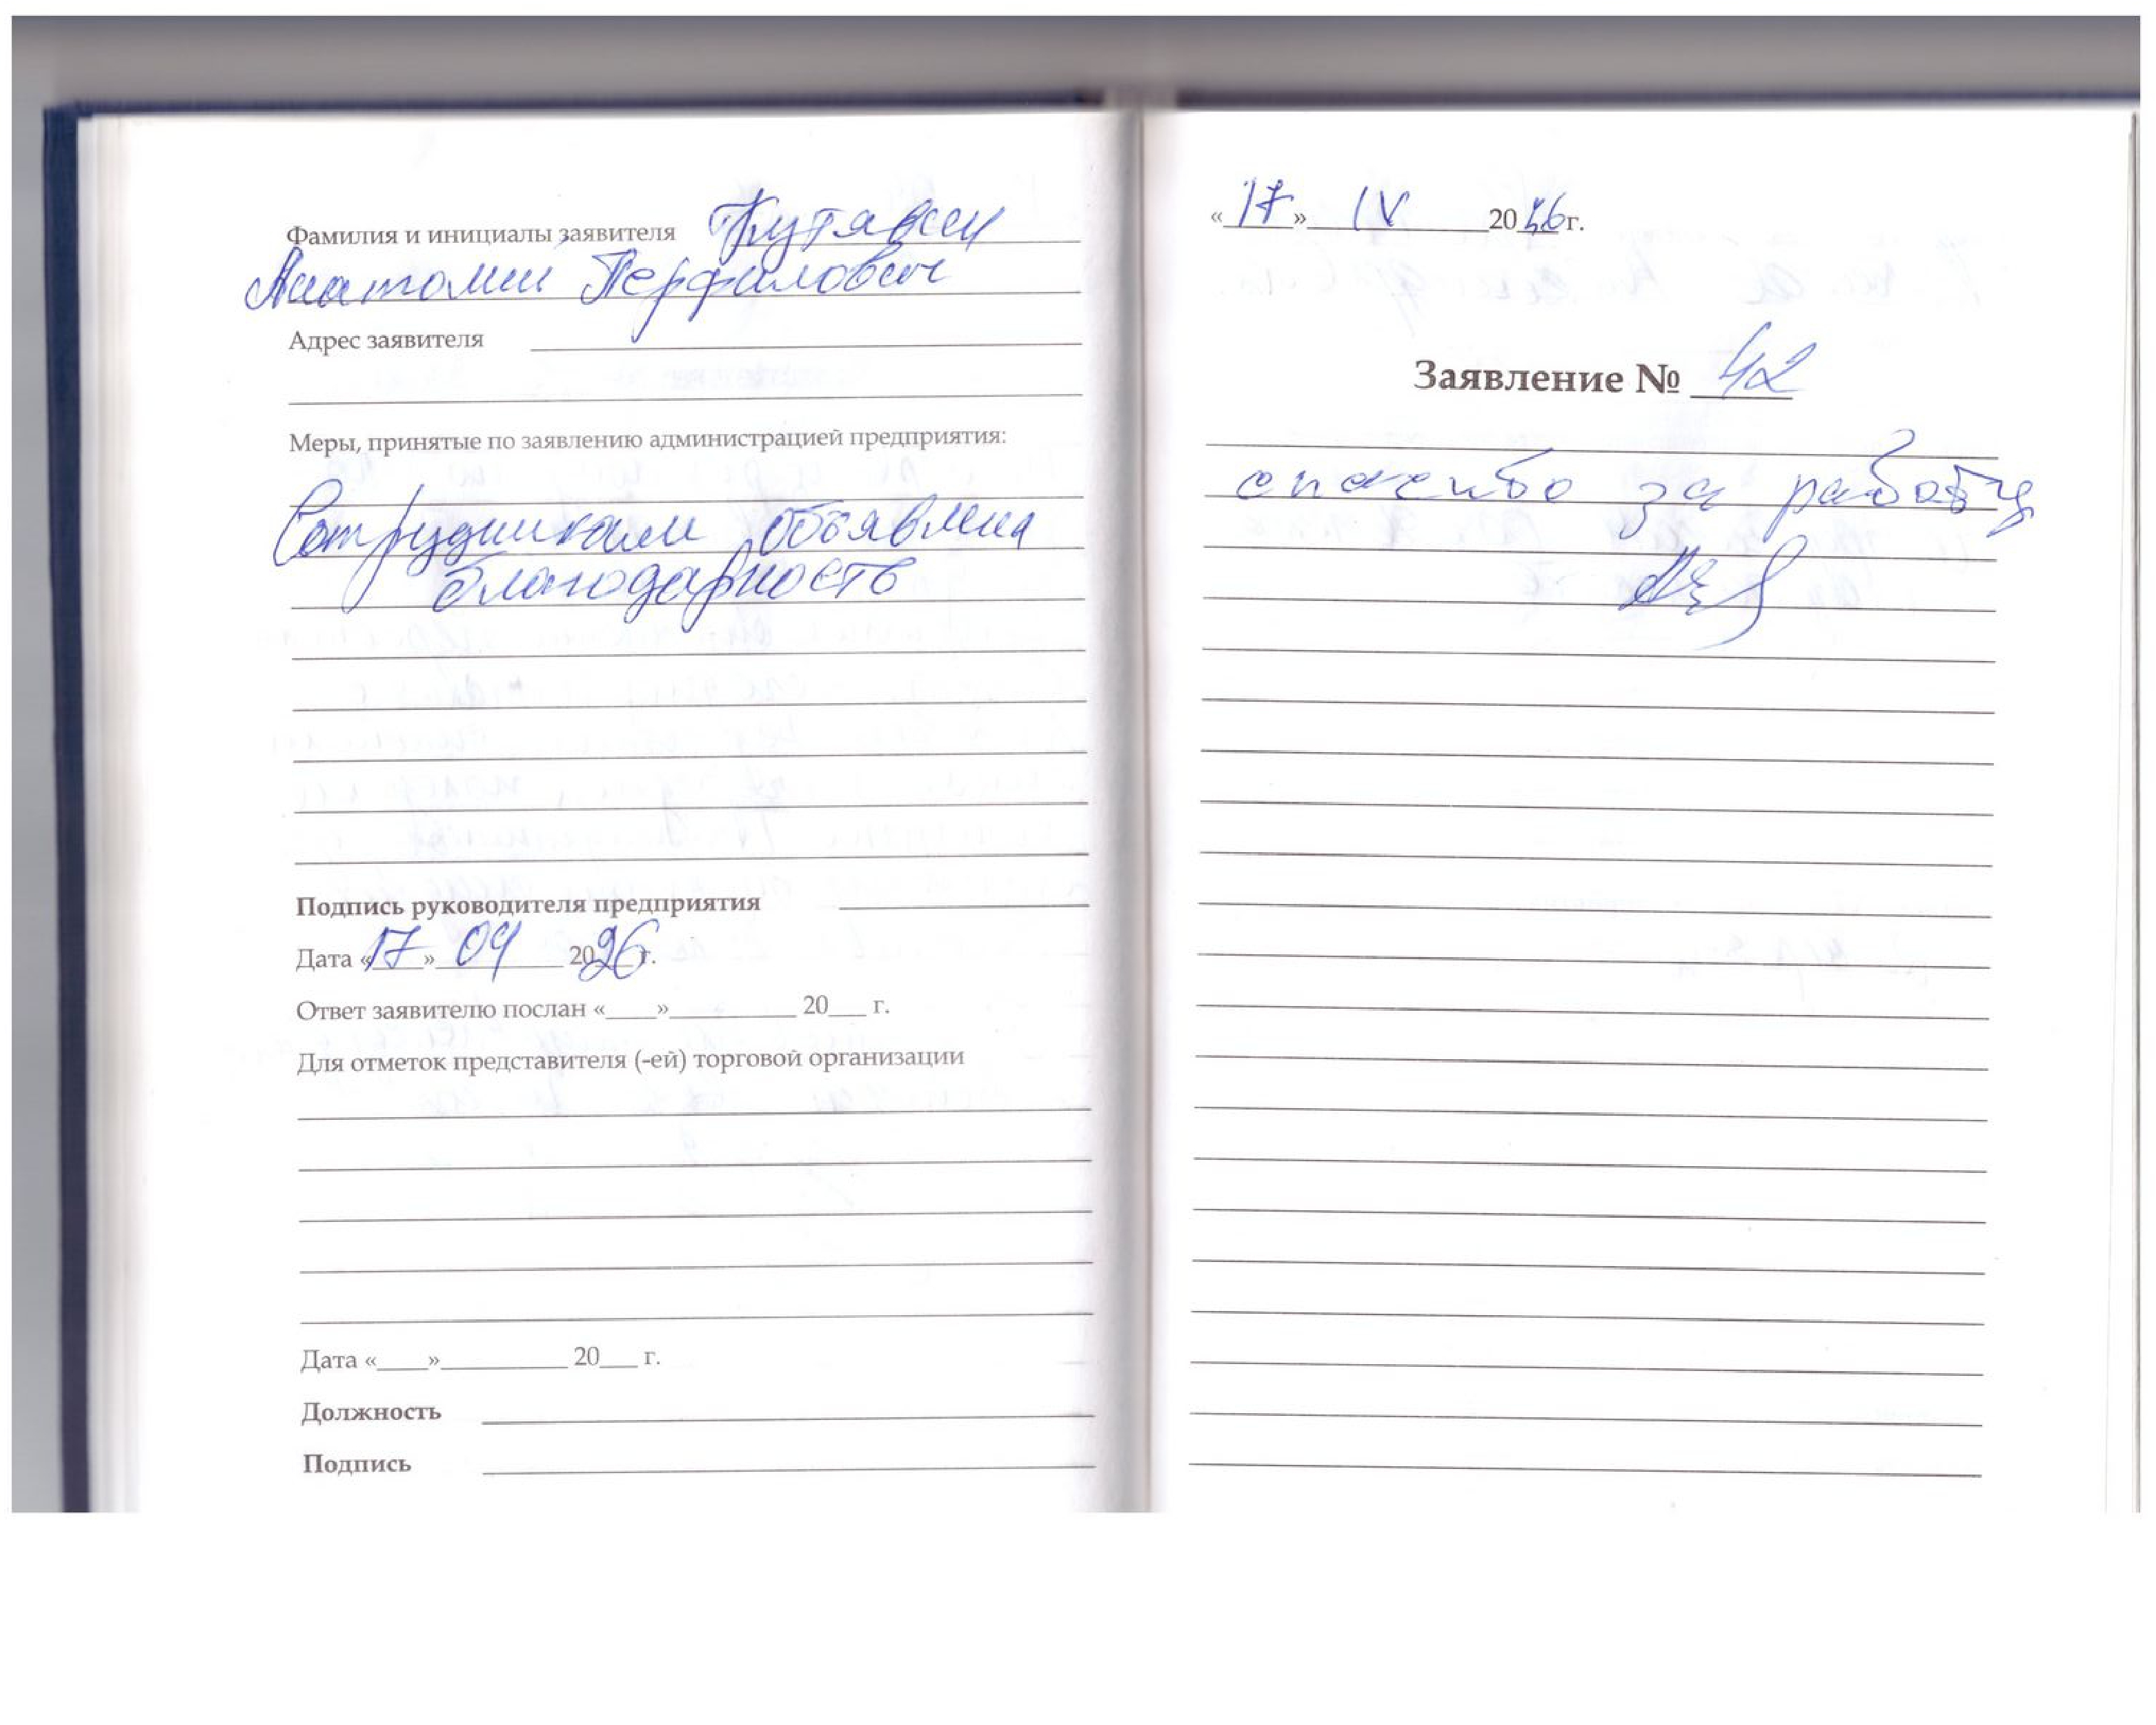 Фамилия и инициалы заявителя
Анатолий Перфилович
Адрес заявителя
Меры, принятые по заявлению администрацией предприятия:
Сотрудникам объявлена
благодарность
Подпись руководителя предприятия
Дата «17» 04 2026 г.
Ответ заявителю послан «____»__________ 20___ г.
Для отметок представителя (-ей) торговой организации
Дата «____»__________ 20___ г.
Должность
Подпись
«17» IV 20 г.
Заявление № 42
спасибо за работу